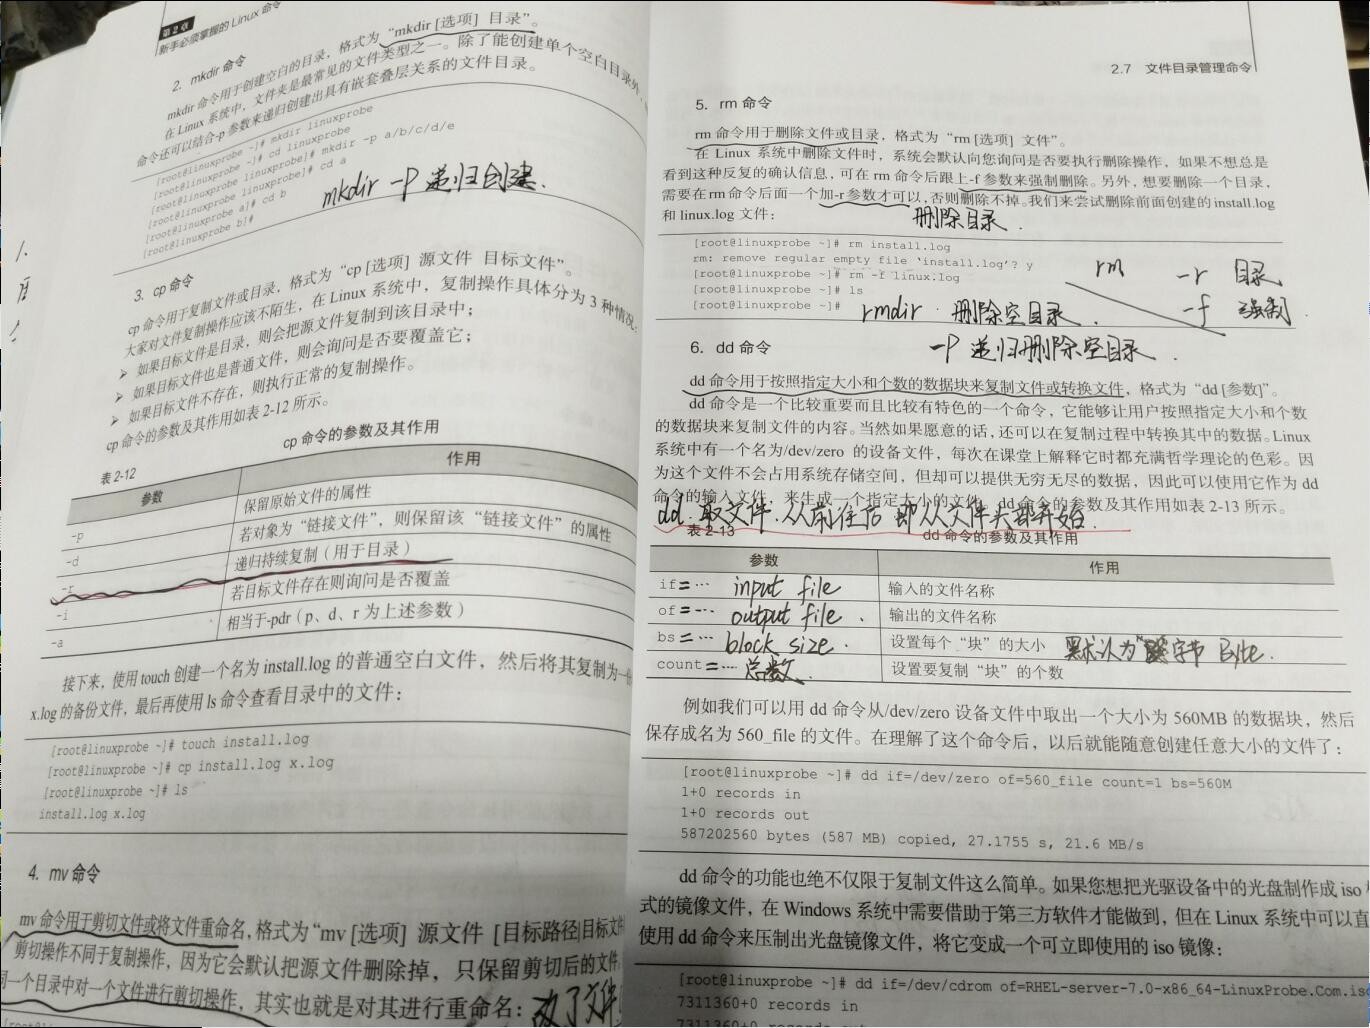 第2章
新手必须掌握的 Linux 命令
2. mkdir 命令
mkdir 命令用于创建空白的目录，格式为“mkdir [选项] 目录”。
在 Linux 系统中，文件夹是最常见的文件类型之一。除了能创建单个空白目录外，
命令还可以结合-p 参数来递归创建出具有嵌套叠层关系的文件目录。
[root@linuxprobe ~]# mkdir linuxprobe
[root@linuxprobe ~]# cd linuxprobe
[root@linuxprobe linuxprobe]# mkdir -p a/b/c/d/e
[root@linuxprobe linuxprobe]# cd a
[root@linuxprobe a]# cd b
[root@linuxprobe b]#
mkdir -P 递归创建.
3. cp 命令
cp 命令用于复制文件或目录，格式为“cp [选项] 源文件 目标文件”。
大家对文件复制操作应该不陌生，在 Linux 系统中，复制操作具体分为 3 种情况：
➢ 如果目标文件是目录，则会把源文件复制到该目录中；
➢ 如果目标文件也是普通文件，则会询问是否要覆盖它；
➢ 如果目标文件不存在，则执行正常的复制操作。
cp 命令的参数及其作用如表 2-12 所示。
表 2-12 cp 命令的参数及其作用
参数 作用
-p 保留原始文件的属性
-d 若对象为“链接文件”，则保留该“链接文件”的属性
-r 递归持续复制（用于目录）
-i 若目标文件存在则询问是否覆盖
-a 相当于-pdr（p、d、r 为上述参数）
接下来，使用 touch 创建一个名为 install.log 的普通空白文件，然后将其复制为一份
x.log 的备份文件，最后再使用 ls 命令查看目录中的文件：
[root@linuxprobe ~]# touch install.log
[root@linuxprobe ~]# cp install.log x.log
[root@linuxprobe ~]# ls
install.log x.log
4. mv 命令
mv 命令用于剪切文件或将文件重命名，格式为“mv [选项] 源文件 [目标路径|目标文件
剪切操作不同于复制操作，因为它会默认把源文件删除掉，只保留剪切后的文件。
同一个目录中对一个文件进行剪切操作，其实也就是对其进行重命名：
2.7 文件目录管理命令
5. rm 命令
rm 命令用于删除文件或目录，格式为“rm [选项] 文件”。
在 Linux 系统中删除文件时，系统会默认向您询问是否要执行删除操作，如果不想总是
看到这种反复的确认信息，可在 rm 命令后跟上-f 参数来强制删除。另外，想要删除一个目录，
需要在 rm 命令后面一个加-r 参数才可以，否则删除不掉。我们来尝试删除前面创建的 install.log
和 linux.log 文件：
删除目录.
[root@linuxprobe ~]# rm install.log
rm: remove regular empty file ‘install.log’? y
[root@linuxprobe ~]# rm -f linux.log
[root@linuxprobe ~]# ls
[root@linuxprobe ~]#
rm -r 目录
-f 强制.
rmdir 删除空目录.
-P 递归删除空目录.
6. dd 命令
dd 命令用于按照指定大小和个数的数据块来复制文件或转换文件，格式为“dd [参数]”。
dd 命令是一个比较重要而且比较有特色的一个命令，它能够让用户按照指定大小和个数
的数据块来复制文件的内容。当然如果愿意的话，还可以在复制过程中转换其中的数据。Linux
系统中有一个名为/dev/zero 的设备文件，每次在课堂上解释它时都充满哲学理论的色彩。因
为这个文件不会占用系统存储空间，但却可以提供无穷无尽的数据，因此可以使用它作为 dd
命令的输入文件，来生成一个指定大小的文件。dd 命令的参数及其作用如表 2-13 所示。
dd 取文件.从前往后 即从文件头部开始.
表 2-13 dd 命令的参数及其作用
参数 作用
if=… input file 输入的文件名称
of=… output file . 输出的文件名称
bs=… block size . 设置每个“块”的大小 默认为 字节 Byte.
count=… 总数. 设置要复制“块”的个数
例如我们可以用 dd 命令从/dev/zero 设备文件中取出一个大小为 560MB 的数据块，然后
保存成名为 560_file 的文件。在理解了这个命令后，以后就能随意创建任意大小的文件了：
[root@linuxprobe ~]# dd if=/dev/zero of=560_file count=1 bs=560M
1+0 records in
1+0 records out
587202560 bytes (587 MB) copied, 27.1755 s, 21.6 MB/s
dd 命令的功能也绝不仅限于复制文件这么简单。如果您想把光驱设备中的光盘制作成 iso
式的镜像文件，在 Windows 系统中需要借助于第三方软件才能做到，但在 Linux 系统中可以直
使用 dd 命令来压制出光盘镜像文件，将它变成一个可立即使用的 iso 镜像：
[root@linuxprobe ~]# dd if=/dev/cdrom of=RHEL-server-7.0-x86_64-LinuxProbe.Com.iso
7311360+0 records in
7311360+0 records out